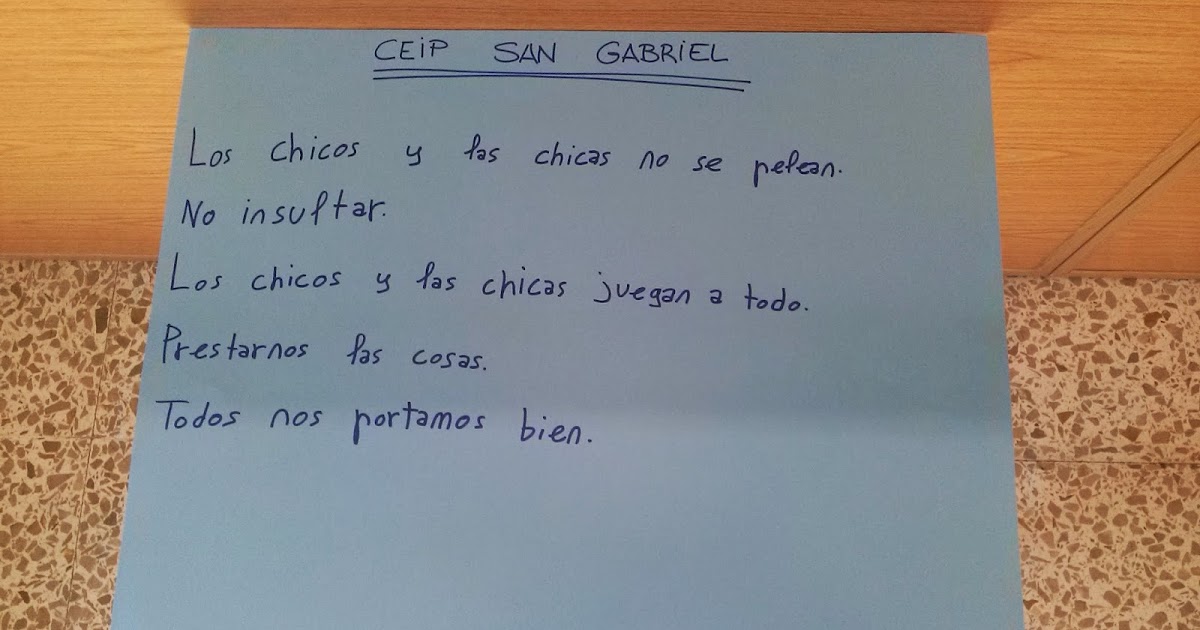 CEIP SAN GABRIEL
Los chicos y las chicas no se pelean.
No insultar.
Los chicos y las chicas juegan a todo.
Prestarnos las cosas.
Todos nos portamos bien.